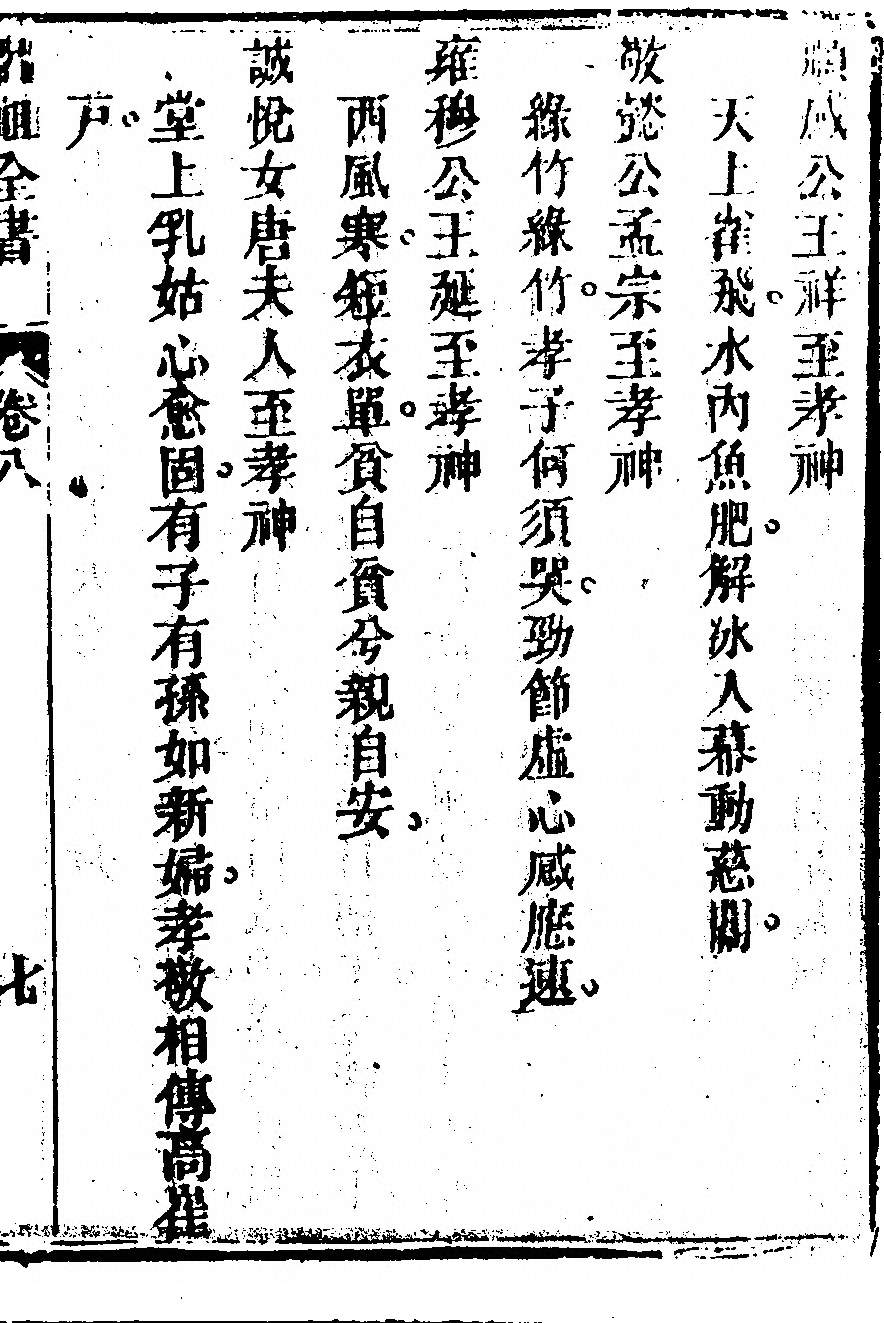 順感公王祥至孝神
天上雀飛。水內魚肥。解冰入幕動慈闈。
敬懿公孟宗至孝神
綠竹綠竹。孝子何須哭。勁節虛心感應速。
雍穆公王延至孝神
西風寒。短衣單。貧自貧兮親自安。
誠悅女唐夫人至孝神
堂上乳姑心愈固。有子有孫如新婦。孝敬相傳高崔
戶。
呂祖全書 卷八 七